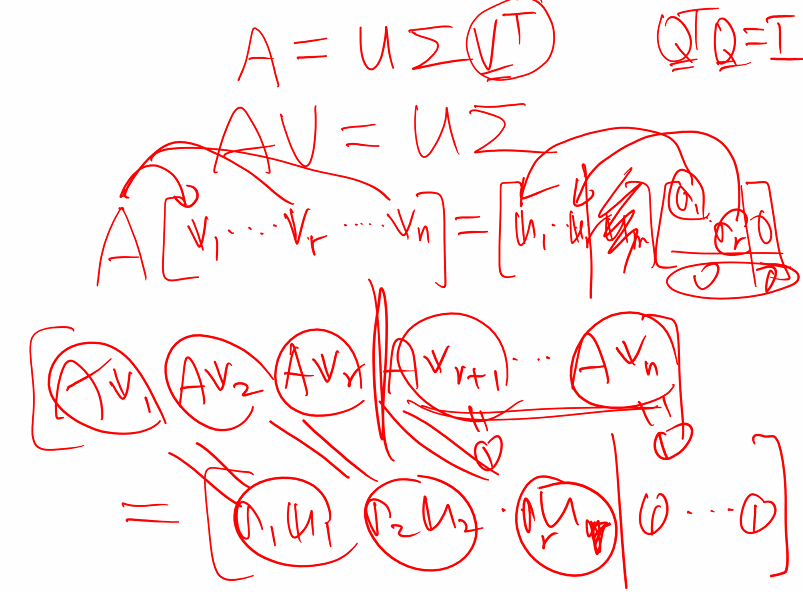 A = U Σ Vᵀ QᵀQ = I
AV = UΣ
A [v₁ ⋯ vᵣ ⋯ vₙ] = [u₁ ⋯ uᵣ] [σ₁ ⋱ σᵣ 0 0 0]
[Av₁ Av₂ Avᵣ Avᵣ₊₁ ⋯ Avₙ]
0 0
= [σ₁u₁ σ₂u₂ ⋅ σᵣuᵣ 0 ⋯ 0]